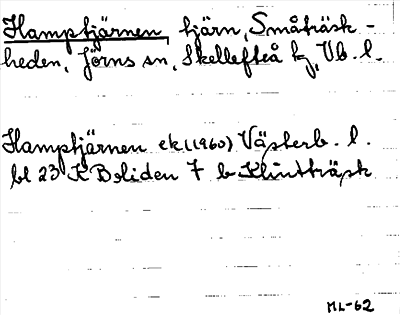 Hamptjärnen, tjärn, Småträsk-
heden, Jörns sn, Skellefteå kg, Vb. l.
Hamptjärnen ek. (1960) Västerb. l.
bl 23 K Boliden 7 b Klintträsk
ML-62